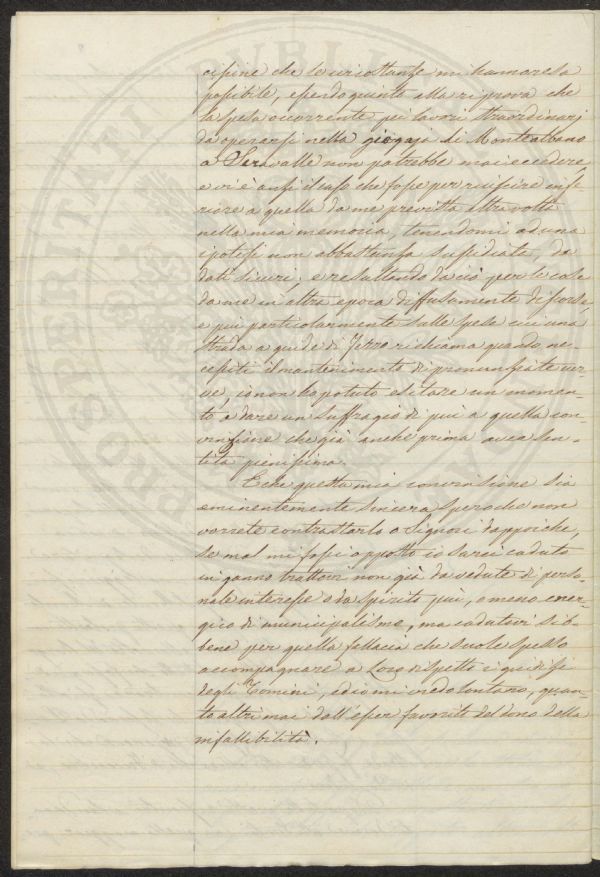 cifine che le circostanze mi hanno resa
possibile, essendo giunto alla riprova che
la spesa occorrente pei lavori straordinarj
da operarsi nella giogaja di Montealbano
a Seravalle non potrebbe mai eccedere,
e vi è anzi il caso che fosse per riuscire infe-
riore a quella da me prevista altra volta
nella mia memoria, tenendomi ad una
ipotesi non abbastanza sussidiata, da
dati sicuri, e resultando da ciò per le cose
da me in altra epoca diffusamente discorse,
e più particolarmente sulle spese cui una
strada a guide di ferro richiama quando ne-
cessiti il mantenimento di pronunziate cur-
ve, io non ho potuto esitare un momen-
to a dare un suffragio di più a quella con-
vinzione che già anche prima avea sen-
tita pienissima.
E che questa mia convinzione sia
eminentemente sincera spero che non
vorrete contrastarlo o Signori dappoiche,
se mal mi fossi apposto io sarei caduto
in ganno trattovi non già da vedute di perso-
nale interesse o da spirito più, o meno ener-
gico di municipalismo, ma cadutovi sib-
bene per quella fallacia che suole spesso
accompagnare a Loro dispetto i giudizi
degli Uomini, ed io mi credo lontano, quan-
to altri mai dall'esser favorito del dono della
infallibilità.
PROSPERITATI PUBLICAE